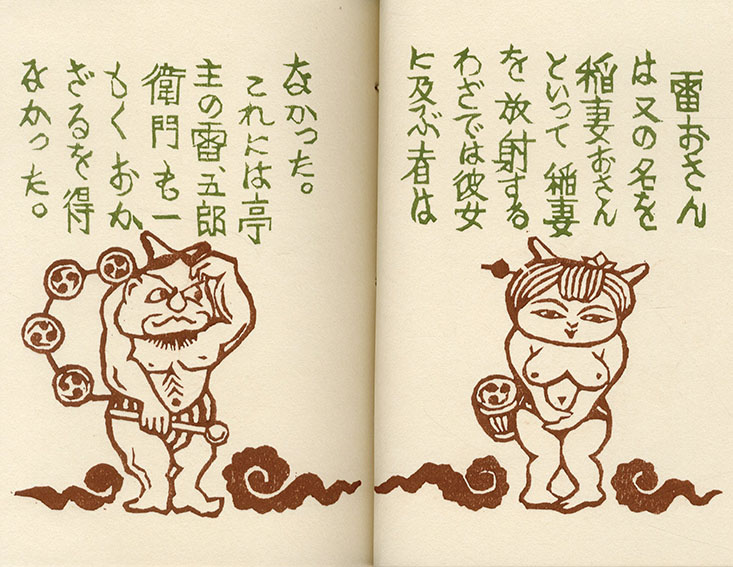 雷おさん
は又の名を
稲妻おさん
といって稲妻
を放射する
わざでは彼女
に及ぶ者は
なかった。
これには亭
主の雷、五郎
衛門も一
もくおか
ざるを得
なかった。